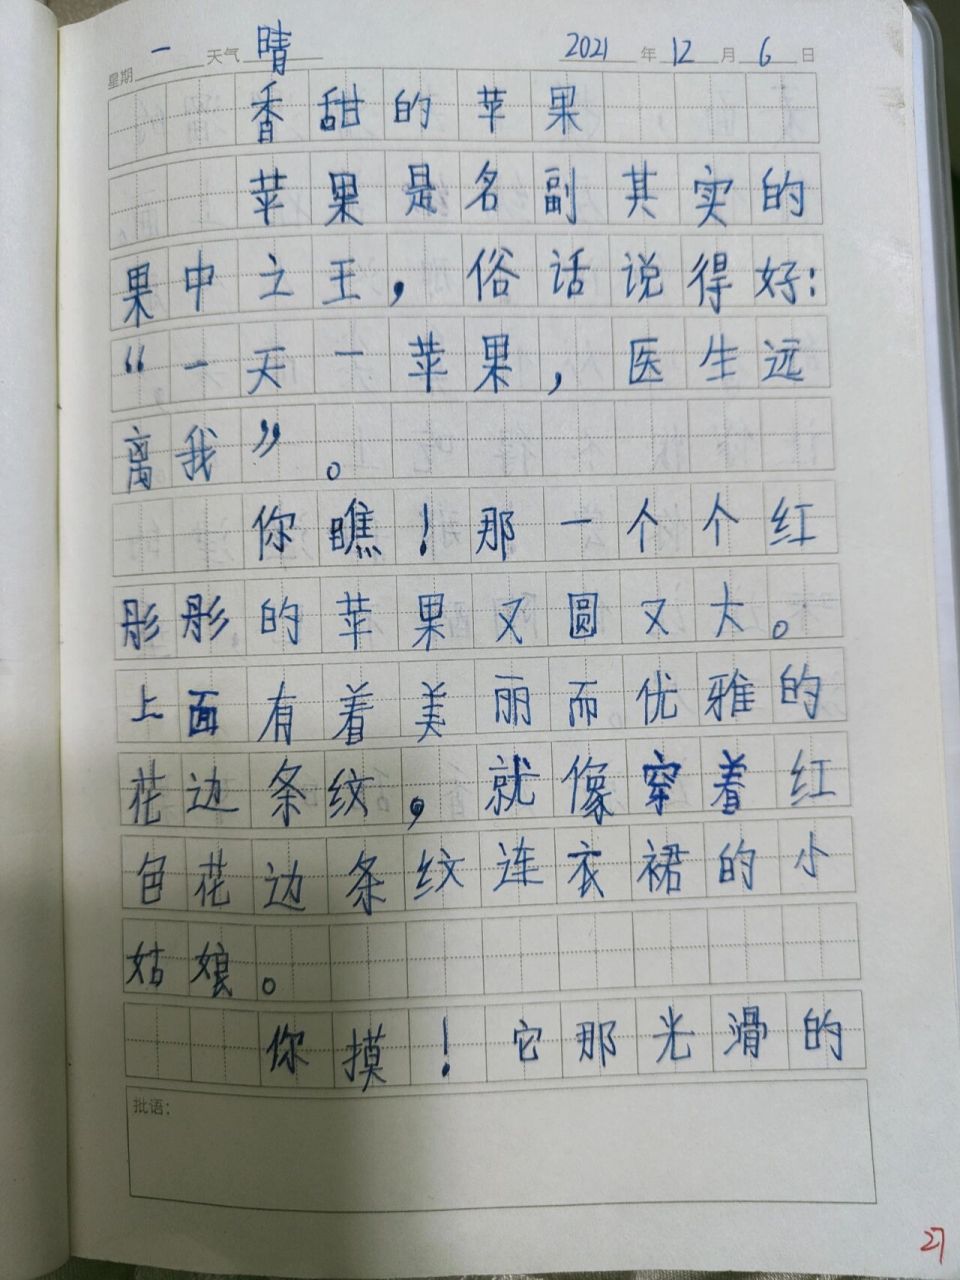 星期 一 天气 晴 2021 年 12 月 6 日
香甜的苹果
苹果是名副其实的
果中之王，俗话说得好：
“一天一苹果，医生远
离我”。
你瞧！那一个个红
彤彤的苹果又圆又大。
上面有着美丽而优雅的
花边条纹，就像穿着红
色花边条纹连衣裙的小
姑娘。
你摸！它那光滑的
批语：
27